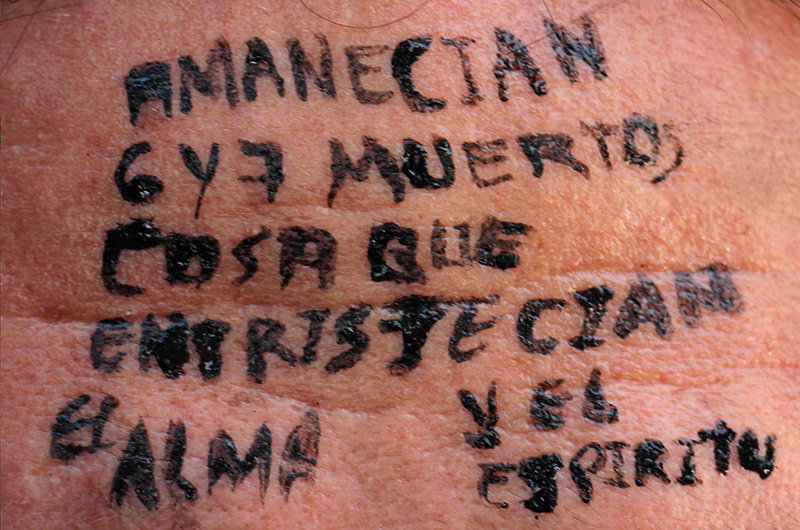 AMANECIAN
6 Y 7 MUERTOS
COSA QUE
ENTRISTECIAN
EL ALMA Y EL
ESPIRITU